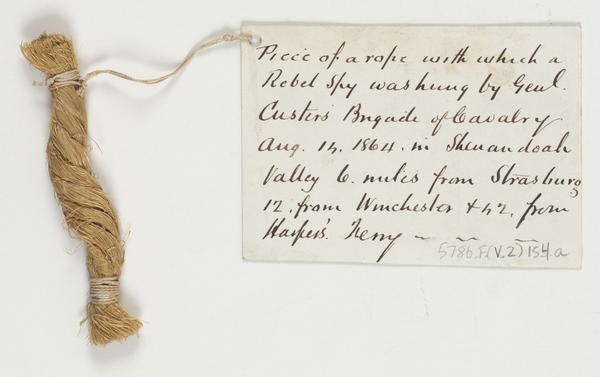 Piece of a rope with which a
Rebel Spy was hung by Genl.
Custer's Brigade of Cavalry
Aug. 14. 1864. in Shenandoah
Valley 6. miles from Strasburg
12. from Winchester & 42. from
Harper's. Ferry
5786.F(v.2)154.a